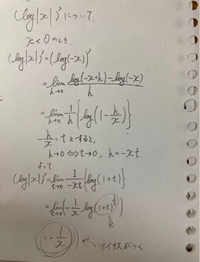 (log|x|)'について、
x<0のとき、
(log|x|)'=(log(-x))'
=lim_{h→0} \frac{log(-x+h)-log(-x)}{h}
=lim_{h→0} \frac{1}{h}{log(1-\frac{h}{x})}
-\frac{h}{x}=tとすると、
h→0⇔t→0, h=-xt
よって
(log|x|)'=lim_{t→0} \frac{1}{-xt}{log(1+t)}
=lim_{t→0}(-\frac{1}{x}log(1+t)^{\frac{1}{t}})
e
=-\frac{1}{x} マイナスがつく